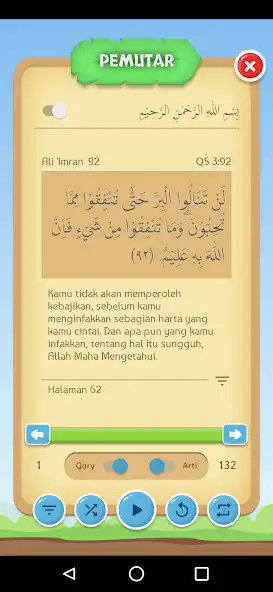 PEMUTAR
بِسْمِ اللهِ الرَّحْمٰنِ الرَّحِيْمِ
Ali 'Imran 92 QS 3:92
لَنْ تَنَالُوا الْبِرَّ حَتّٰى تُنْفِقُوْا مِمَّا
تُحِبُّوْنَ ۗوَمَا تُنْفِقُوْا مِنْ شَيْءٍ فَاِنَّ
اللّٰهَ بِهٖ عَلِيْمٌ (٩٢)
Kamu tidak akan memperoleh
kebajikan, sebelum kamu
menginfakkan sebagian harta yang
kamu cintai. Dan apa pun yang kamu
infakkan, tentang hal itu sungguh,
Allah Maha Mengetahui.
Halaman 62
1 Qory Arti 132